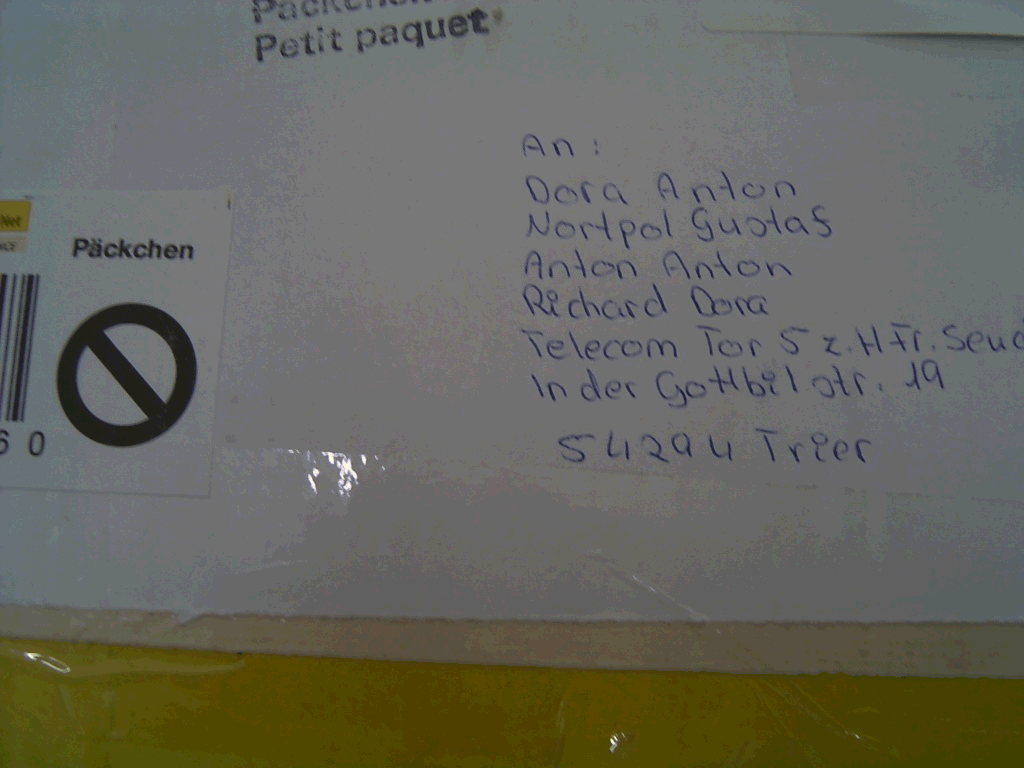 Päckchen
Petit paquet
An :
Dora Anton
Nortpol Gustas
Anton Anton
Richard Dora
Telecom Tor 5 z.H Fr.
In der Gottbil str. 19
54294 Trier
Net
Päckchen
6 0